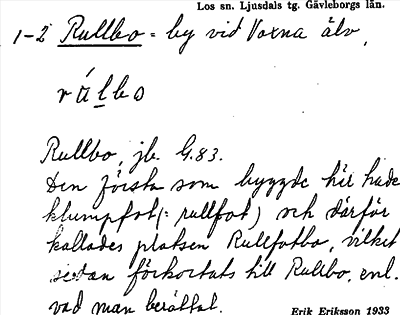 Los sn. Ljusdals tg. Gävleborgs län.
1-2 Rullbo = by vid Voxna älv,
rúlbo
Rullbo, jb. G.83.
Den första som byggde här hade
klumpfot (: rullfot) och därför
kallades platsen Rullfotbo, vilket
sedan förkortats till Rullbo, enl.
vad man berättat.
Erik Eriksson 1933